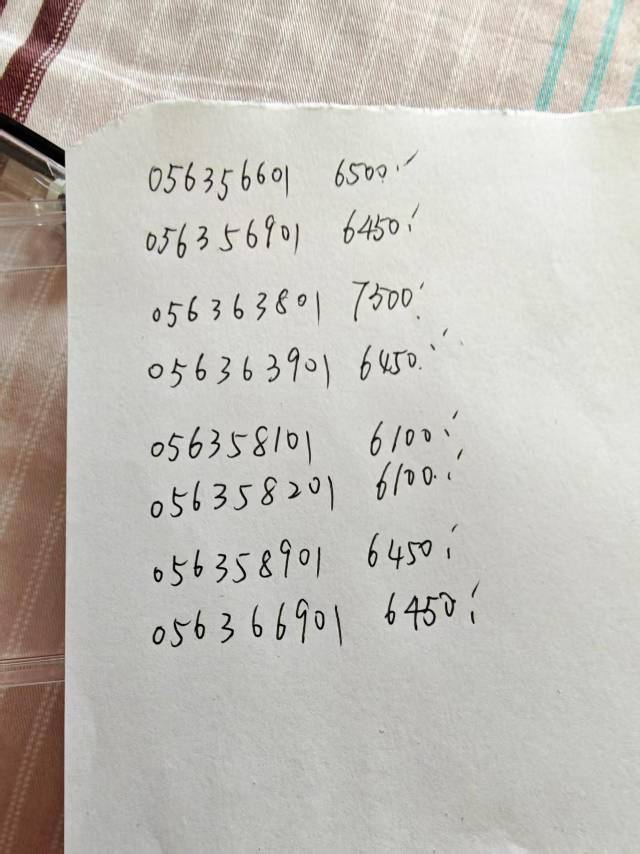 056356601 6500
056356901 6450
056363801 7500
056363901 6450
056358101 6100
056358201 6100
056358901 6450
056366901 6450